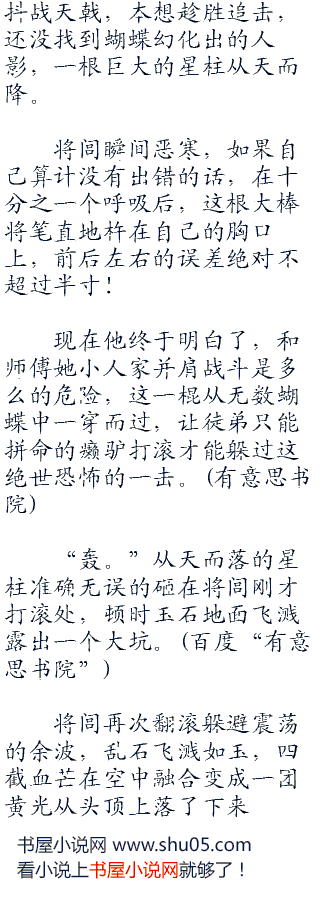 抖战天戟，本想趁胜追击，
还没找到蝴蝶幻化出的人
影，一根巨大的星柱从天而
降。
将闾瞬间恶寒，如果自
己算计没有出错的话，在十
分之一个呼吸后，这根大棒
将笔直地杵在自己的胸口
上，前后左右的误差绝对不
超过半寸！
现在他终于明白了，和
师傅她小人家并肩战斗是多
么的危险，这一棍从无数蝴
蝶中一穿而过，让徒弟只能
拼命的癞驴打滚才能躲过这
绝世恐怖的一击。(有意思书
院)
“轰。”从天而落的星
柱准确无误的砸在将闾刚才
打滚处，顿时玉石地面飞溅
露出一个大坑。(百度“有意
思书院”)
将闾再次翻滚躲避震荡
的余波，乱石飞溅如玉，四
截血芒在空中融合变成一团
黄光从头顶上落了下来
书屋小说网 www.shu05.com
看小说上书屋小说网就够了！